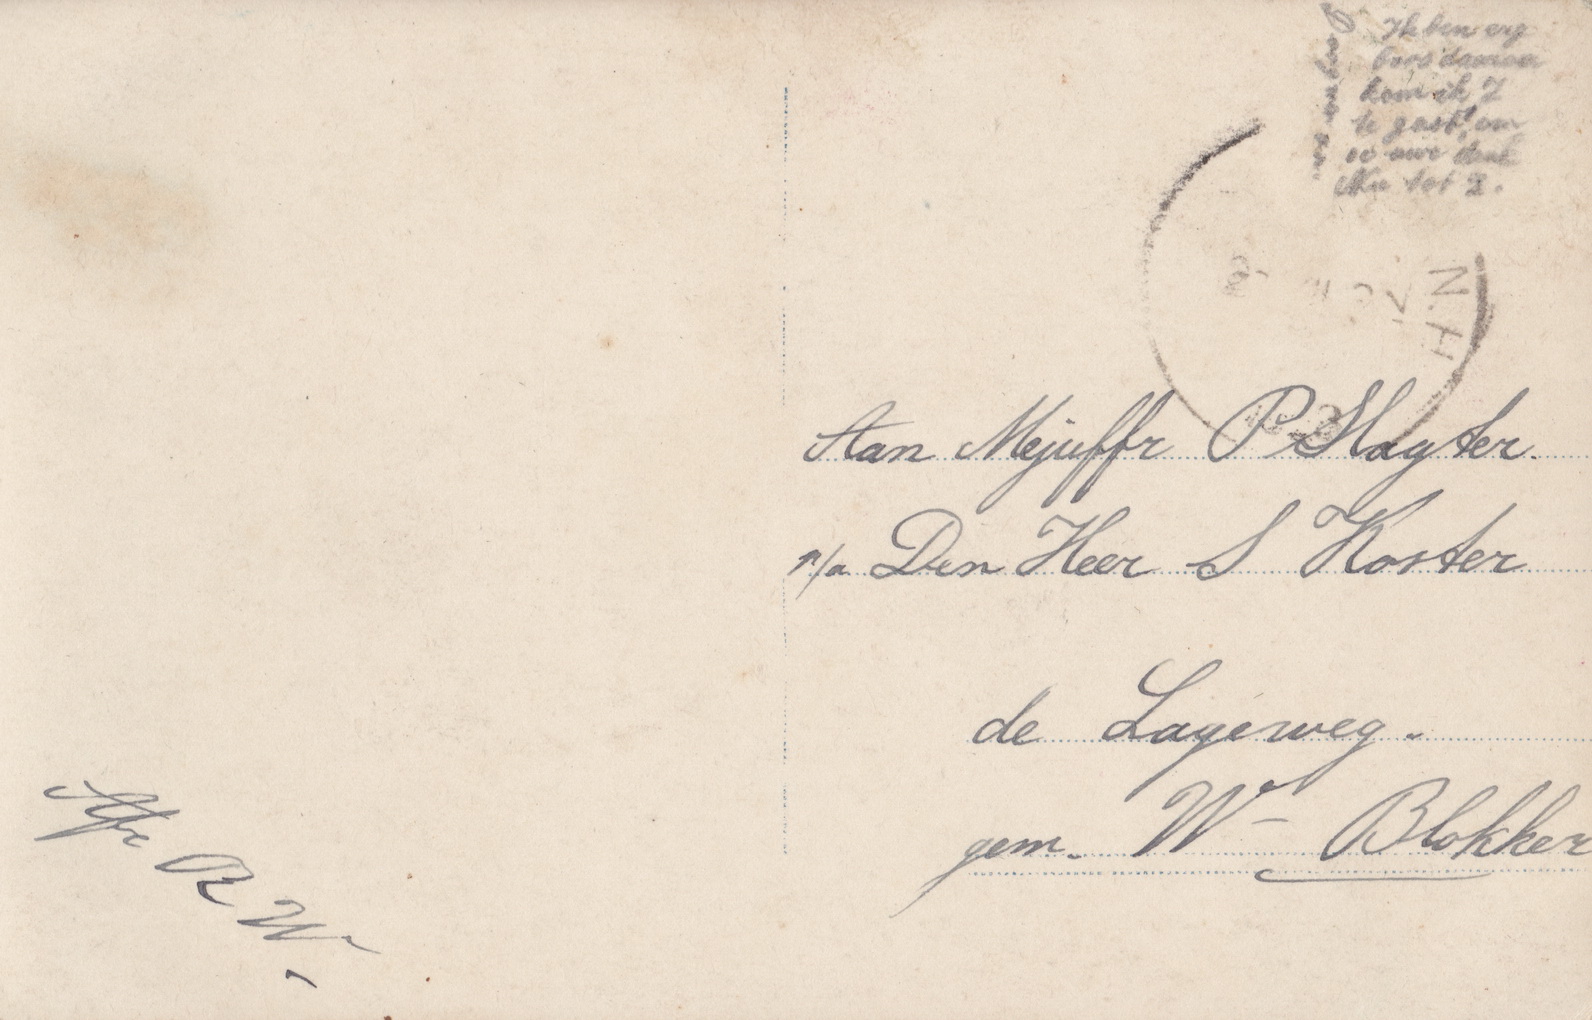 Ik ben erg
kom ik Z
te gast, om
Nu tot Z.
N.H.
Aan Mejuffr P Slagter.
p/a Den Heer S Koster
de Lageweg.
gem. W– Blokker
Afz R W–